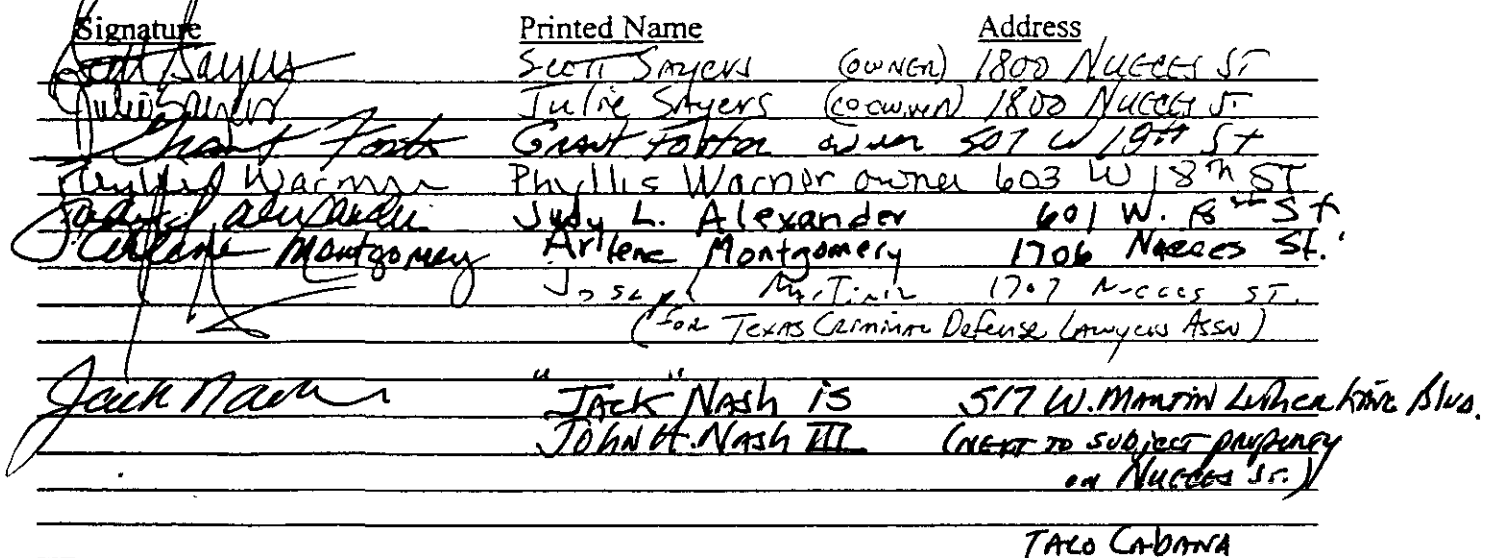 Signature Printed Name Address
Scott Sayers Scott Sayers (owner) 1800 Nueces St
Julie Sayers Julie Sayers (co owner) 1800 Nueces St
Grant owner 507 W 19th St
Phyllis Warner Phyllis Warner owner 603 W 18th ST
Judy L. Alexander 601 W. St
Arlene Montgomery Arlene Montgomery 1706 Nueces St.
Joseph 1707 Nueces ST.
(for Texas Criminal Defense Lawyers Assn)
Jack Nash "Jack" Nash is 517 W. Martin Luther King Blvd.
John H. Nash III (next to subject property
on Nueces St.)
Taco Cabana